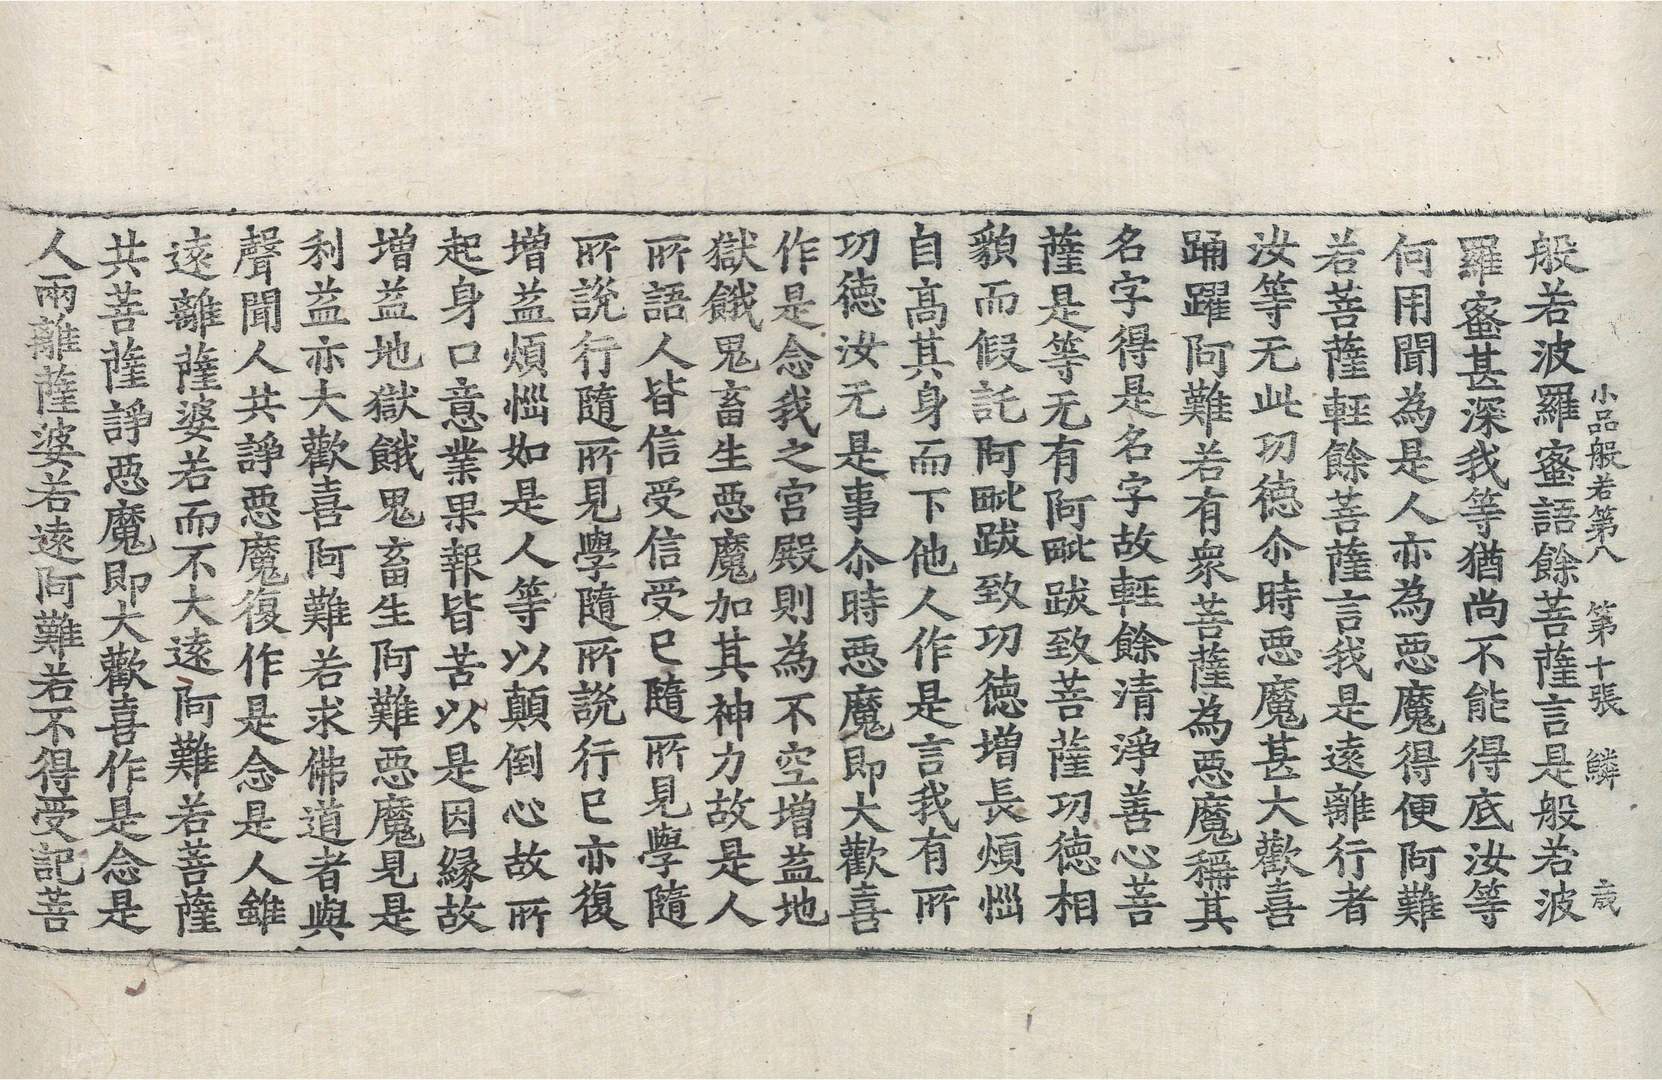 小品般若第八　第十張　鱗　
般若波羅蜜語餘菩薩言是般若波
羅蜜甚深我等猶尚不能得底汝等
何用聞為是人亦為惡魔得便阿難
若菩薩輕餘菩薩言我是遠離行者
汝等无此功德尒時惡魔甚大歡喜
踊躍阿難若有衆菩薩為惡魔稱其
名字得是名字故輕餘清淨善心菩
薩是等无有阿毗跋致菩薩功德相
貌而假託阿毗跋致功德增長煩惱
自高其身而下他人作是言我有所
功德汝无是事尒時惡魔即大歡喜
作是念我之宮殿則為不空增益地
獄餓鬼畜生惡魔加其神力故是人
所語人皆信受信受已隨所見學隨
所說行隨所見學隨所說行已亦復
增益煩惱如是人等以顛倒心故所
起身口意業果報皆苦以是因緣故
增益地獄餓鬼畜生阿難惡魔見是
利益亦大歡喜阿難若求佛道者與
聲聞人共諍惡魔復作是念是人雖
遠離薩婆若而不大遠阿難若菩薩
共菩薩諍惡魔即大歡喜作是念是
人兩離薩婆若遠阿難若不得受記菩